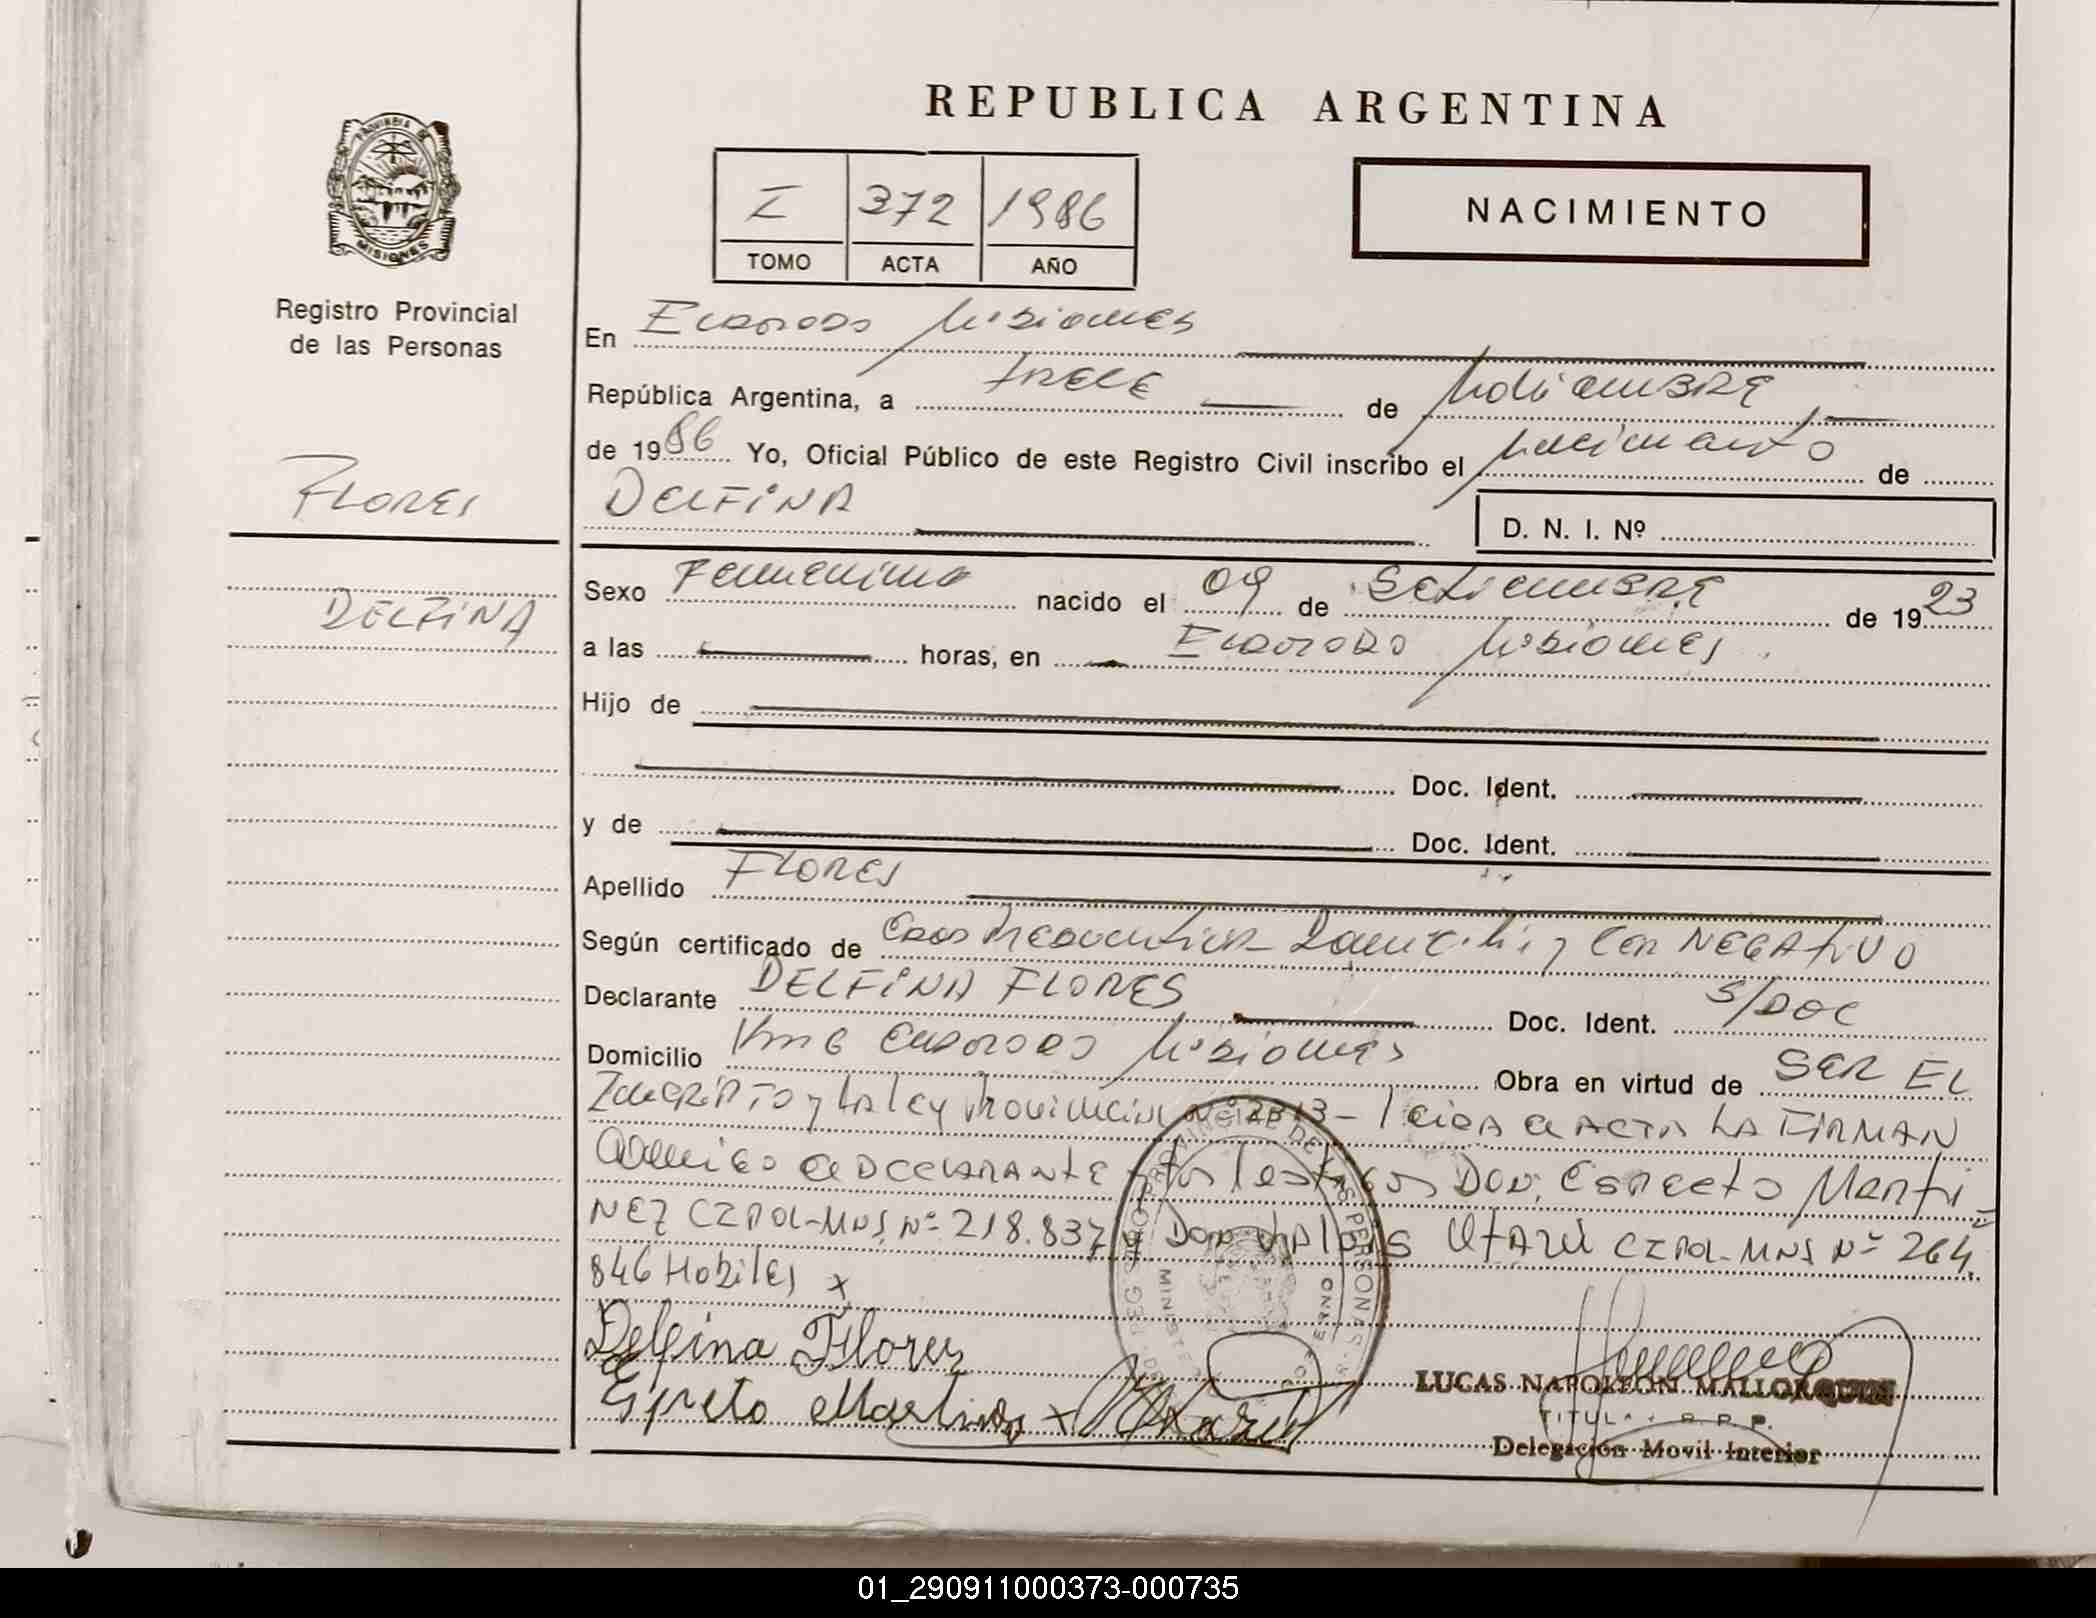 REPUBLICA ARGENTINA
PROVINCIA DE
MISIONES
Registro Provincial
de las Personas
I 372 1986
TOMO ACTA AÑO
NACIMIENTO
En Eldorado Misiones
República Argentina, a trece de Noviembre
de 1986 Yo, Oficial Público de este Registro Civil inscribo el nacimiento de
FLORES
DELFINA
D. N. I. Nº
DELFINA
Sexo Femenino nacido el 09 de Setiembre de 1923
a las horas, en Eldorado Misiones.
Hijo de
Doc. Ident.
y de Doc. Ident.
Apellido FLORES
Según certificado de Domicilio y Cer NEGATIVO
Declarante DELFINA FLORES Doc. Ident. S/DOC
Domicilio Km 6 Eldorado Misiones Obra en virtud de SER EL
Inscripto y la ley Provincial Nº 2813 - leida el ACTA LA FIRMAN
conmigo el DECLARANTE y los testigos Don. Espreto Marti=
NEZ CIPOL-MNS. Nº 218.837 y Don UTARU CIPOL-MNS Nº 264.
846 Habiles x
Delfina Flores
Epreto Martinez x
LUCAS NAPOLEON MALLORQUIN
TITULAR R.P.P.
Delegación Movil Interior
01_290911000373-000735